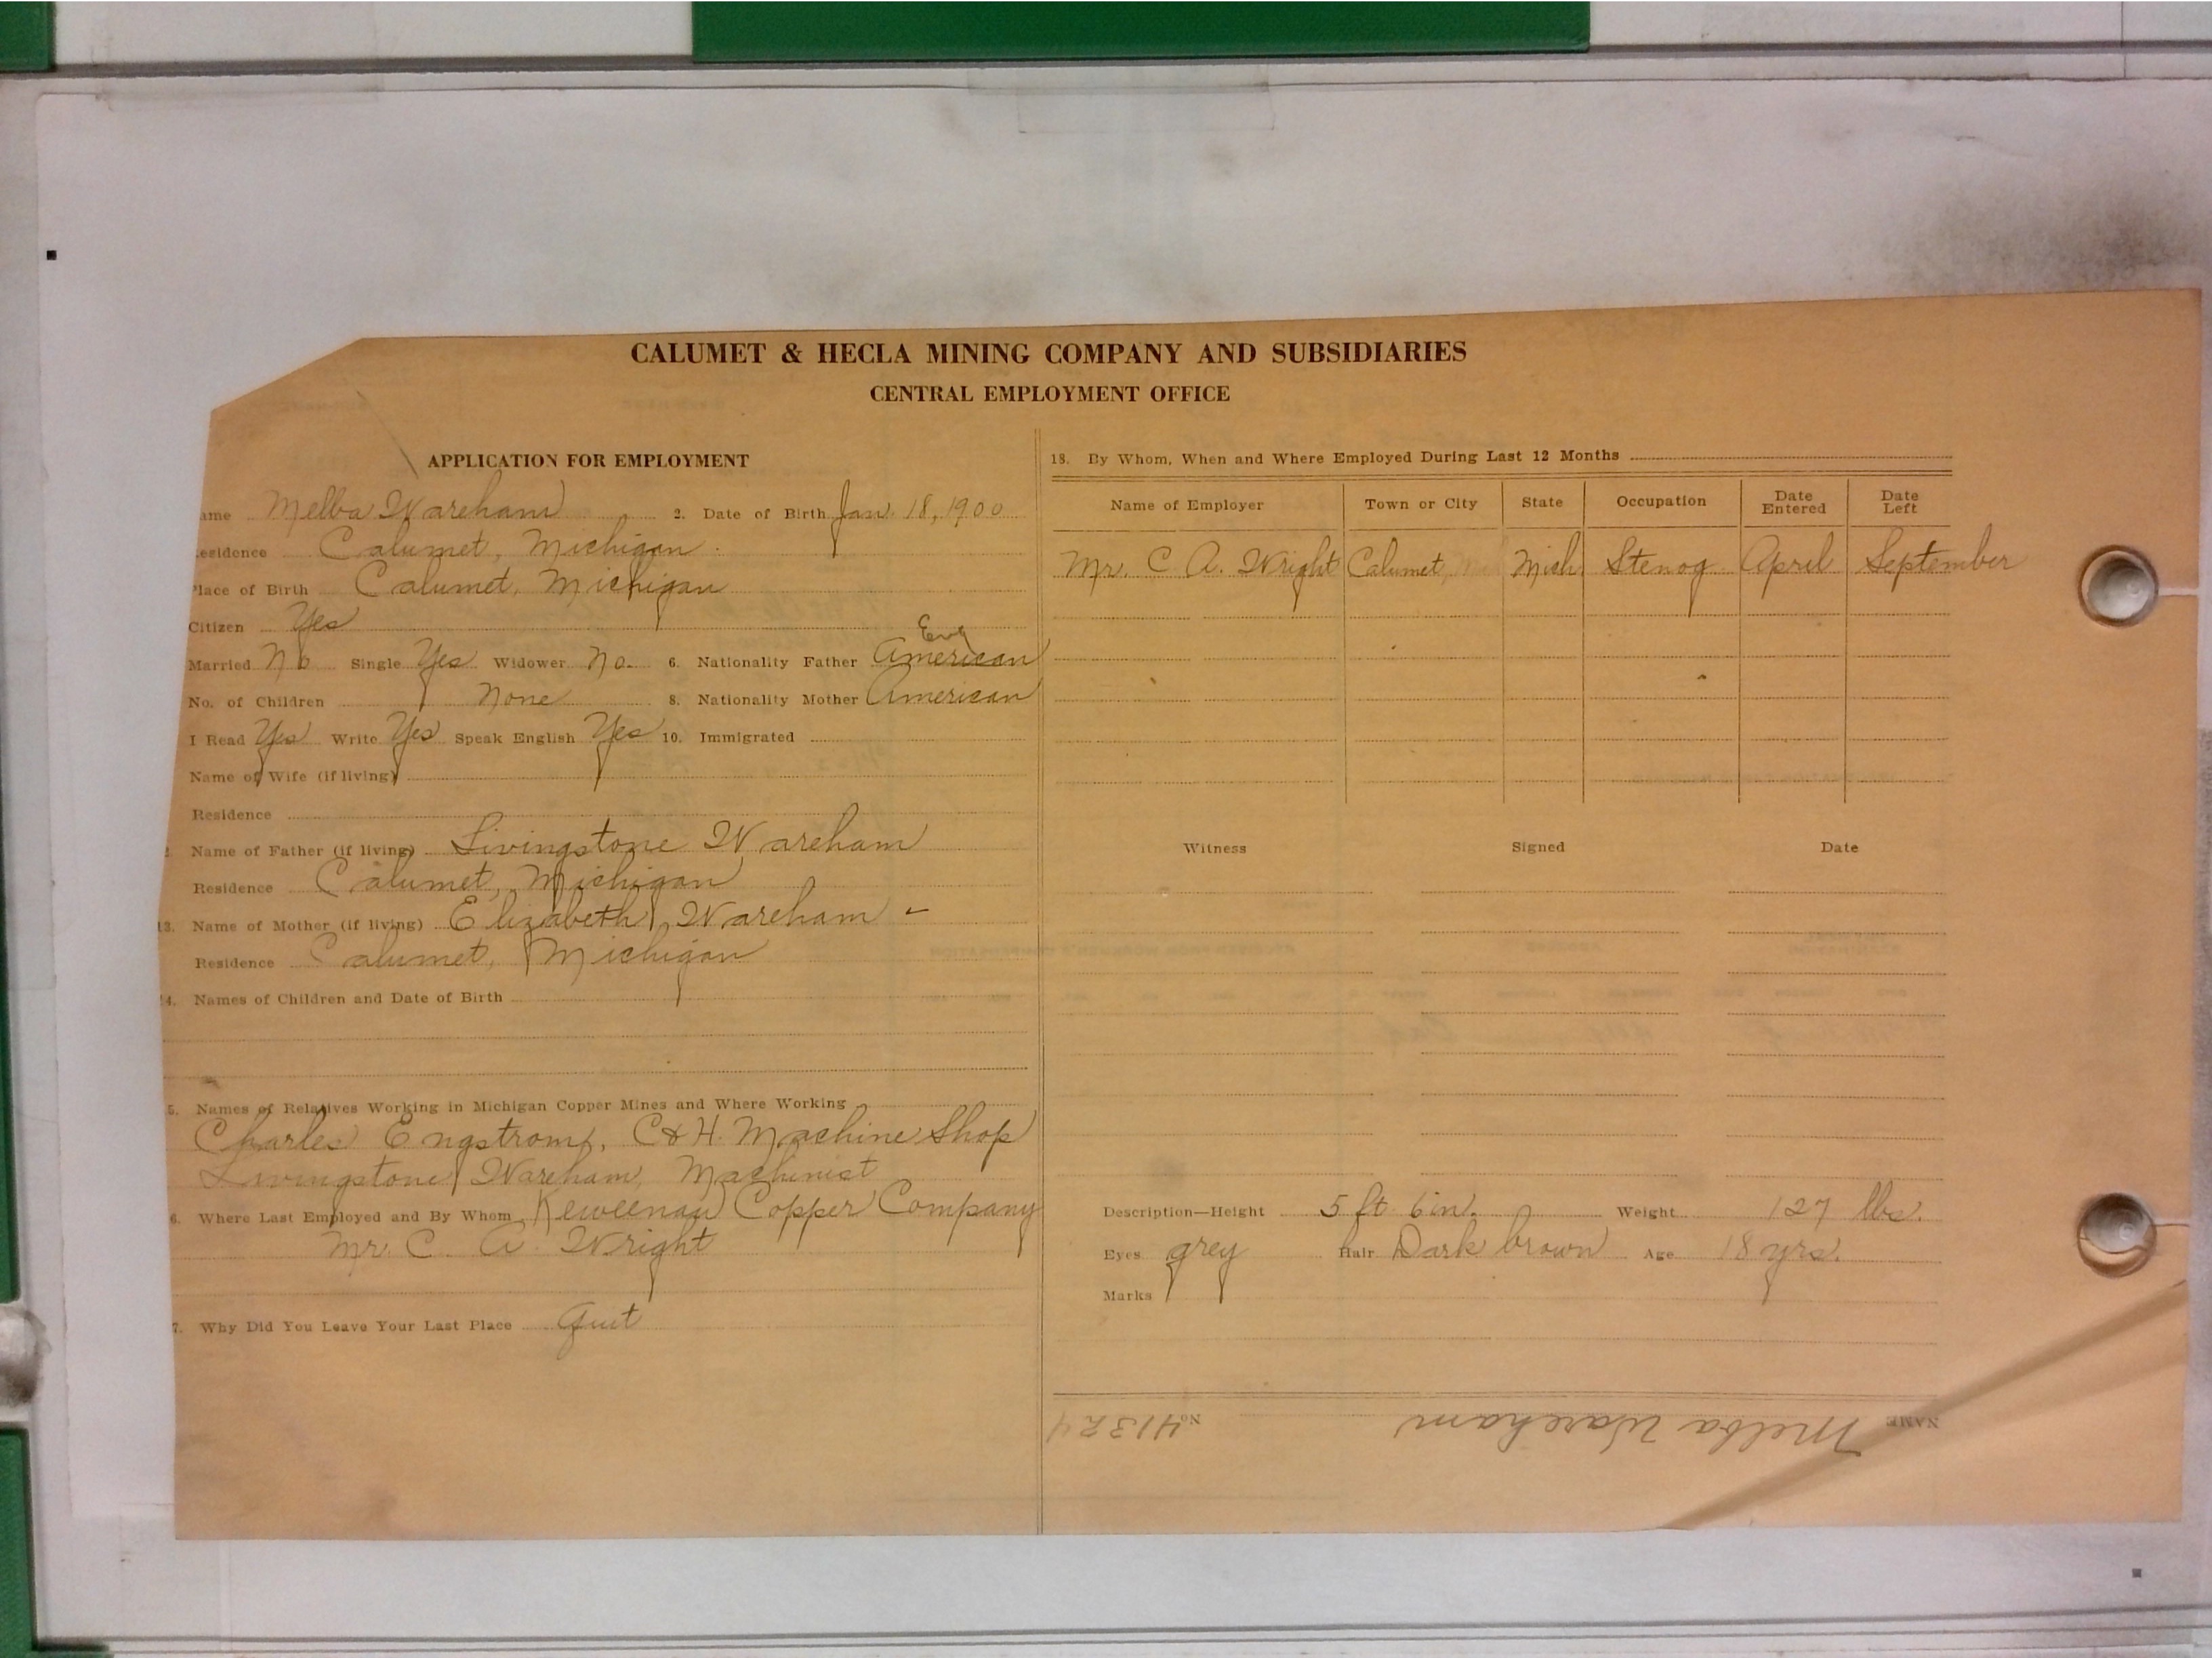 CALUMET & HECLA MINING COMPANY AND SUBSIDIARIES
CENTRAL EMPLOYMENT OFFICE
APPLICATION FOR EMPLOYMENT
ame Melba Wareham 2. Date of Birth Jan. 18, 1900
esidence Calumet, Michigan.
Place of Birth Calumet, Michigan
Citizen Yes
Eng
Married No Single Yes Widower No. 6. Nationality Father American
No. of Children None 8. Nationality Mother American
I Read Yes Write Yes Speak English Yes 10. Immigrated
Name of Wife (if living)
Residence
Name of Father (if living) Livingstone Wareham
Residence Calumet, Michigan
13. Name of Mother (if living) Elizabeth Wareham
Residence Calumet, Michigan
14. Names of Children and Date of Birth
5. Names of Relatives Working in Michigan Copper Mines and Where Working
Charles Engstrom, C & H. Machine Shop
Livingstone Wareham, Machinist
6. Where Last Employed and By Whom Keweenaw Copper Company
Mr. C. A. Wright
7. Why Did You Leave Your Last Place Quit
18. By Whom, When and Where Employed During Last 12 Months
Name of Employer Town or City State Occupation Date Entered Date Left
Mr. C. A. Wright Calumet, Mich. Stenog. April September
Witness Signed Date
Description—Height 5 ft. 6 in. Weight 127 lbs.
Eyes grey Hair Dark brown Age 18 yrs.
Marks
NAME Melba Wareham No. 41324